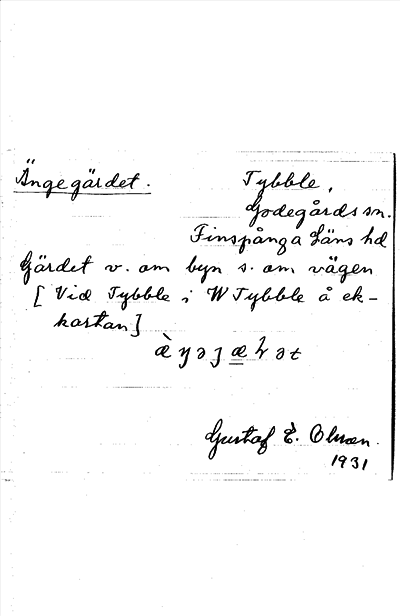 Ängegärdet. Tybble,
Godegårds sn.
Finspånga Läns hd
Gärdet v. om byn s. om vägen
[Vid Tybble i W Tybble å ek-
kartan]
Gustaf E. Olsson.
1931